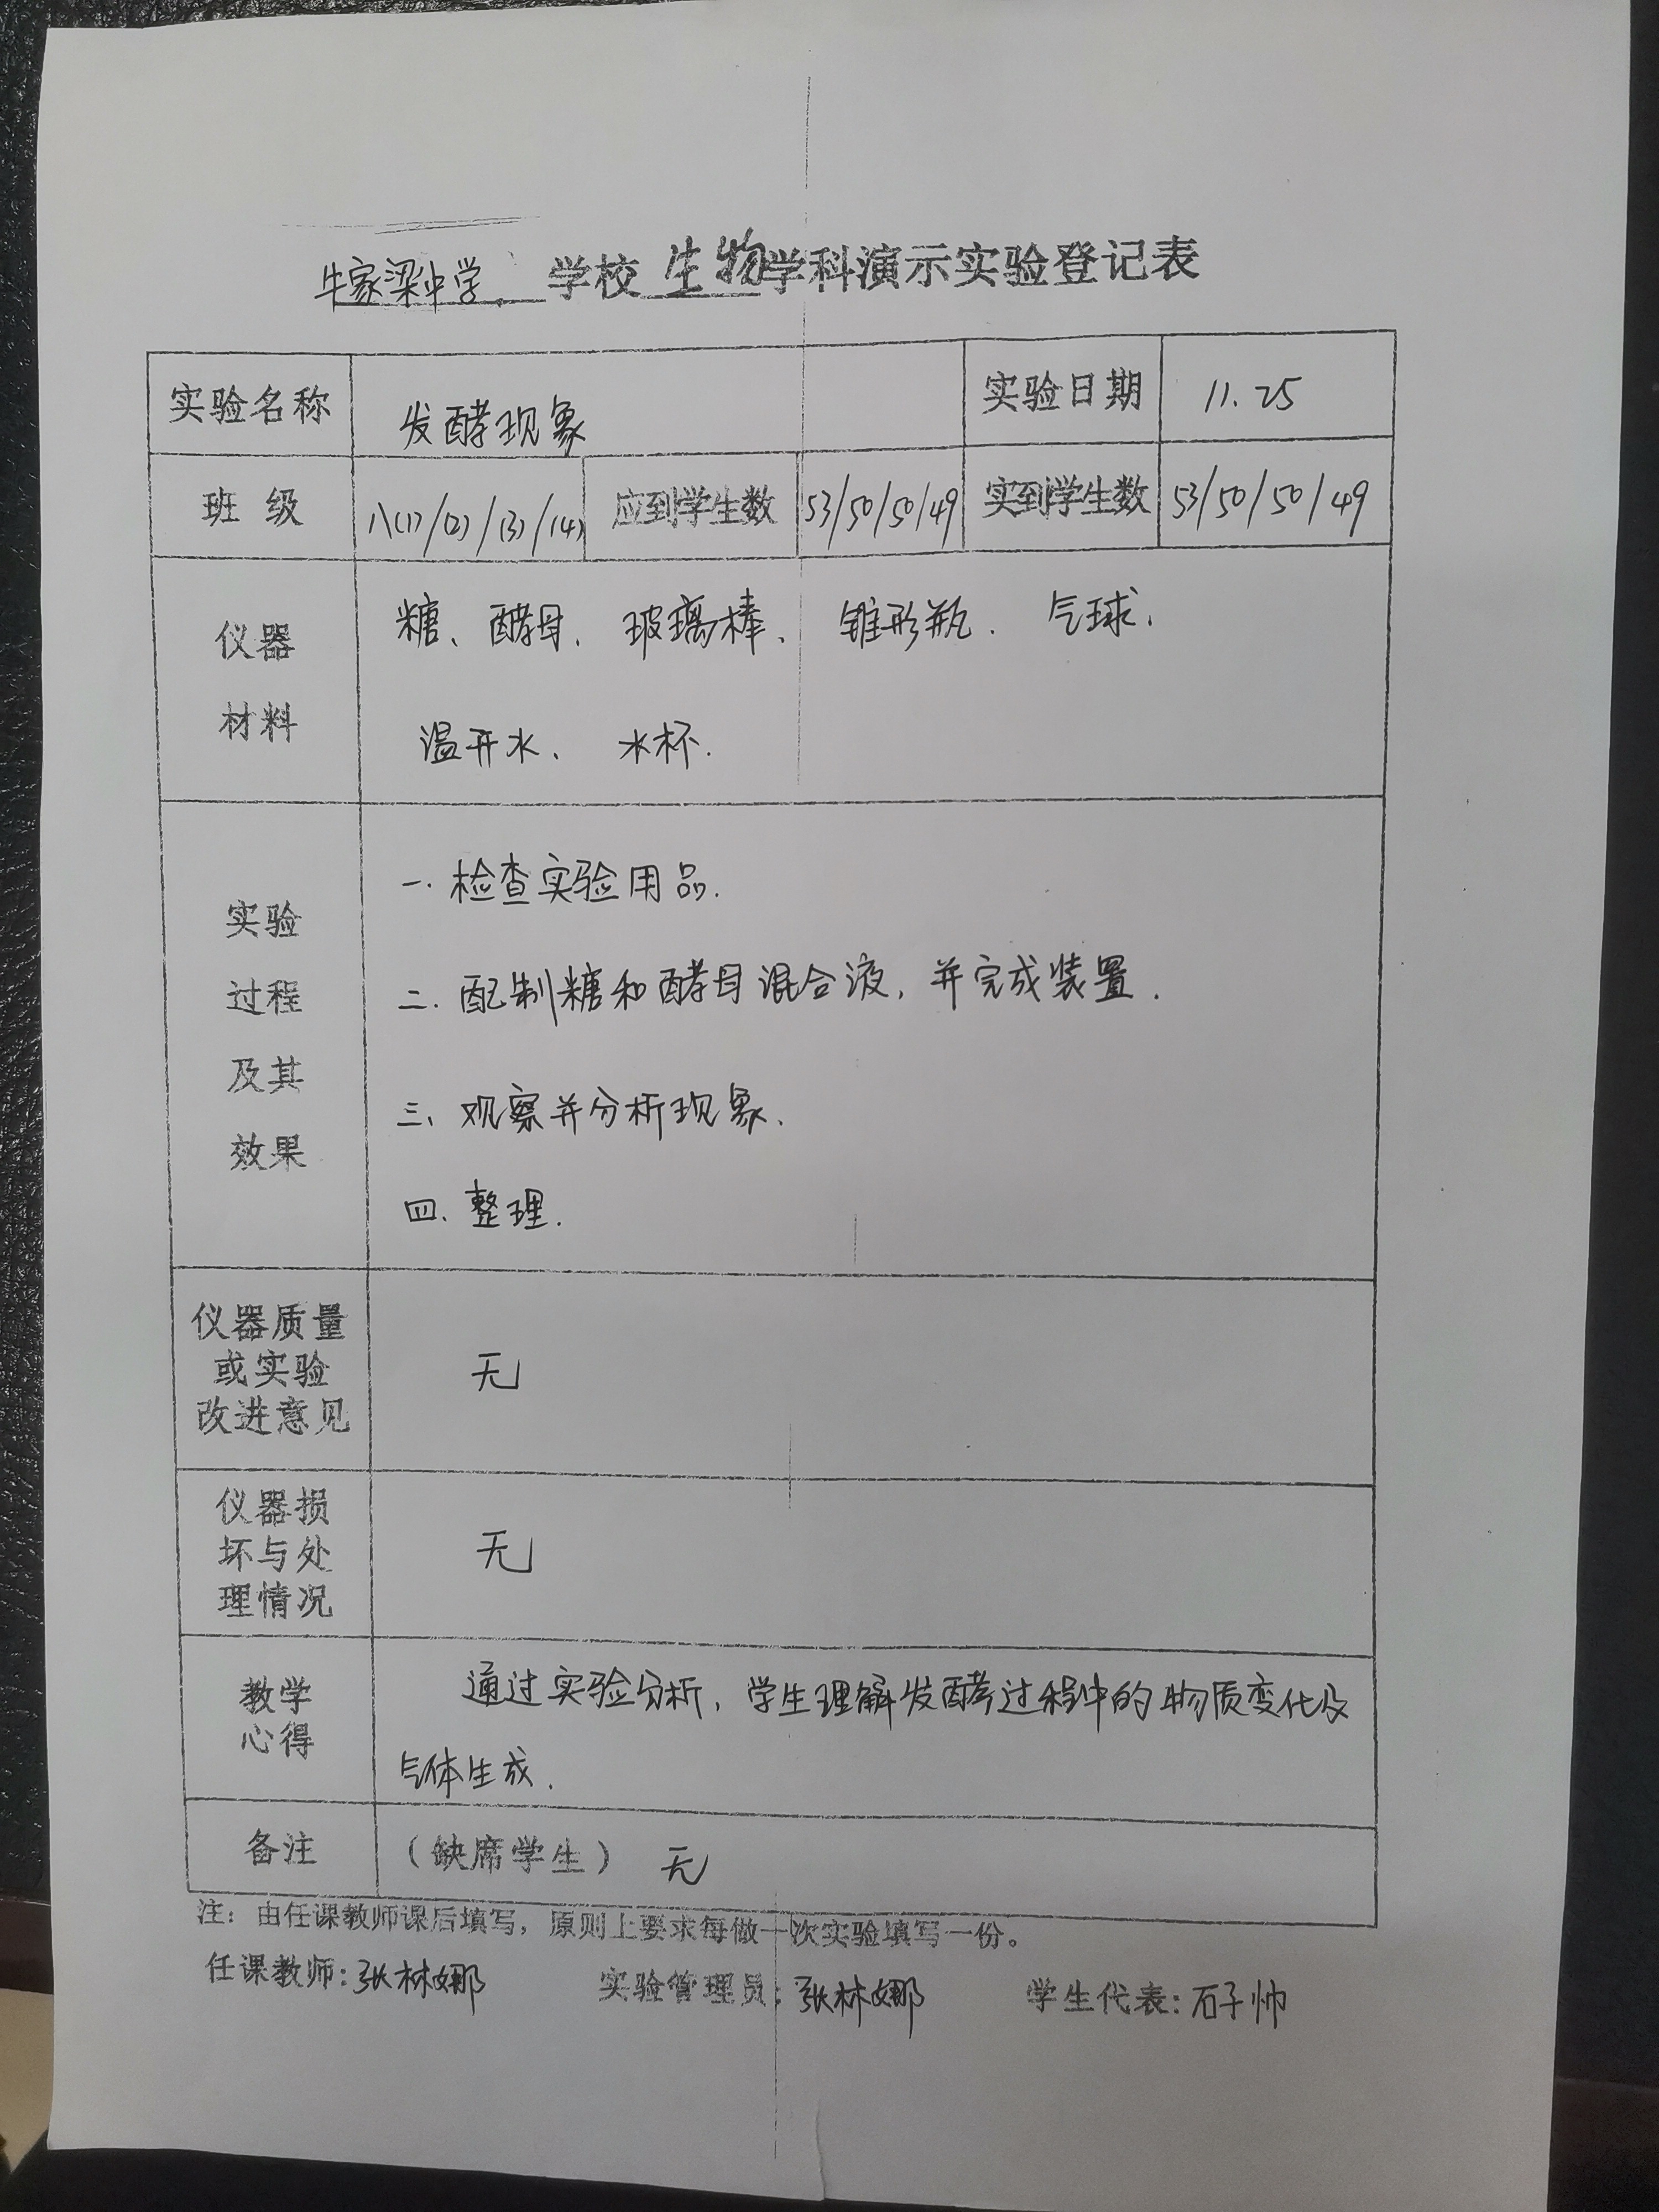 牛家梁中学 学校 生物学科演示实验登记表
实验名称 发酵现象 实验日期 11.25
班 级 八(1)/(2)/(3)/(4) 应到学生数 53/50/50/49 实到学生数 53/50/50/49
仪器
材料
糖、酵母、玻璃棒、锥形瓶、气球、
温开水、水杯.
实验
过程
及其
效果
一. 检查实验用品.
二. 配制糖和酵母混合液, 并完成装置.
三、观察并分析现象.
四. 整理.
仪器质量
或实验
改进意见
无
仪器损
坏与处
理情况
无
教学
心得
通过实验分析, 学生理解发酵过程中的物质变化及
气体生成.
备注 (缺席学生) 无
注: 由任课教师课后填写, 原则上要求每做一次实验填写一份。
任课教师: 张林娜 实验管理员: 张林娜 学生代表: 石子帅